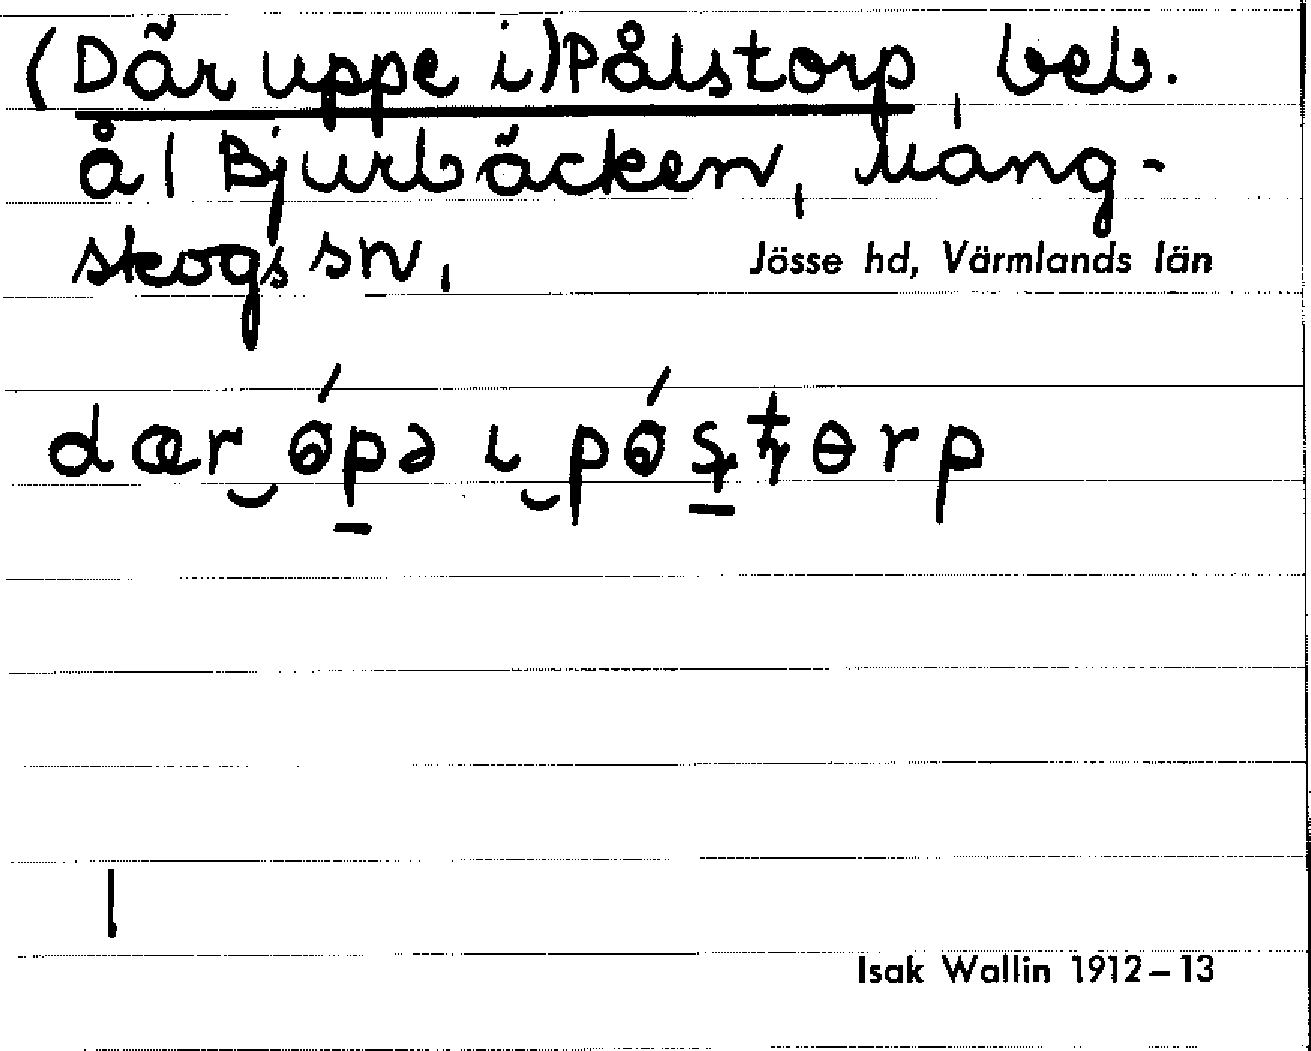 (Där uppe i) Pålstorp, beb.
å | Bjurbäcken, Mang-
skogs sn,
Jösse hd, Värmlands län
dær ɵ́pə ɩ pɵ́ʂʈɵrp
|
Isak Wallin 1912–13